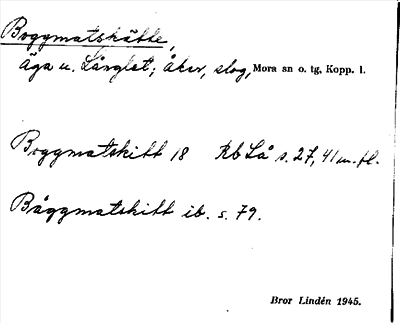 Boggmatskätte,
äga u. Långlet; åker, slog, Mora sn o. tg, Kopp. l.
Boggmatskitt 18 Rb Lå s. 27, 41 m. fl.
Båggmatskitt ib. s. 79.
Bror Lindén 1945.